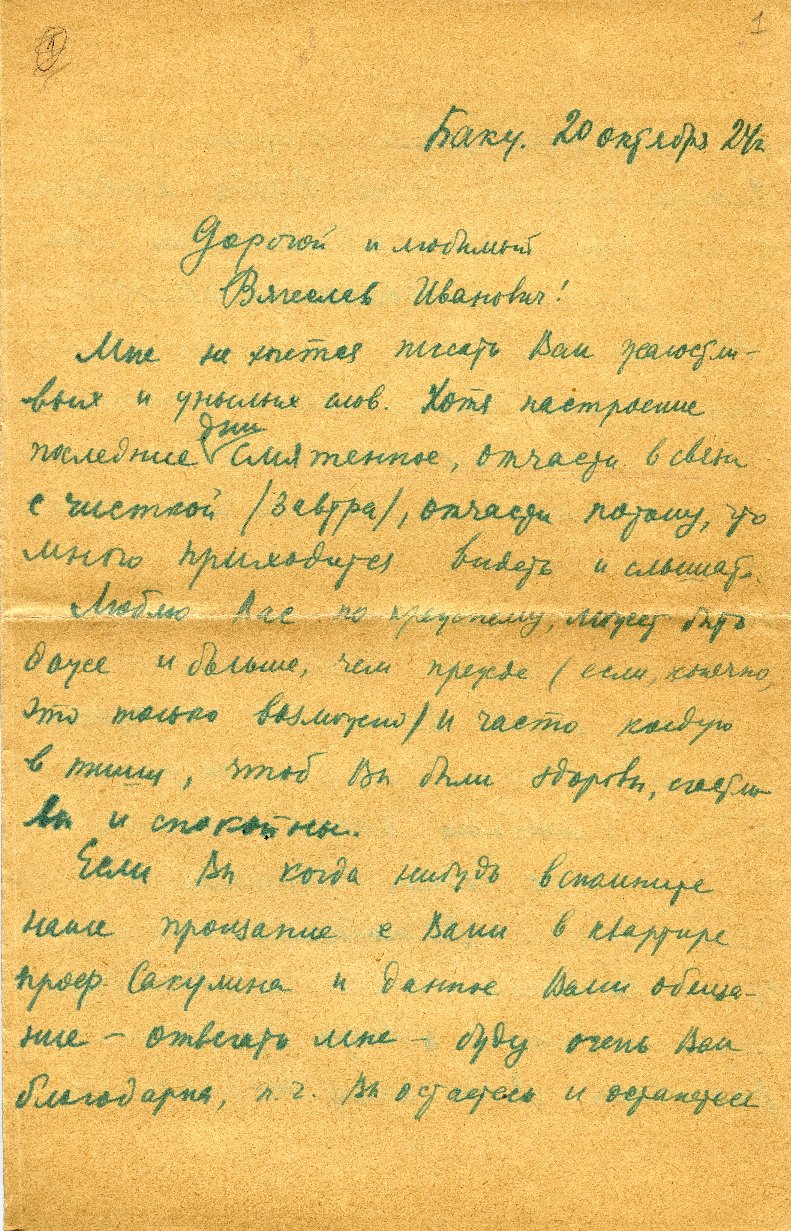 1
1
Баку. 20 октября 24 г.
Дорогой и любимый
Вячеслав Иванович!
Мне не хочется писать Вам жалостли-
вых и унылых слов. Хотя настроение
последние дни смятенное, отчасти в связи
с чисткой /завтра/, отчасти потому, что
много приходится видеть и слышать.
Люблю Вас по прежнему, может быть
даже и больше, чем прежде /если, конечно,
это только возможно/ и часто колдую
в тиши, чтоб Вы были здоровы, счастли-
вы и спокойны.
Если Вы когда нибудь вспомните
наше прощание с Вами в квартире
проф. Сакулина и данное Вами обеща-
ние – отвечать мне – буду очень Вам
благодарна, п.ч. Вы остаетесь и останетесь